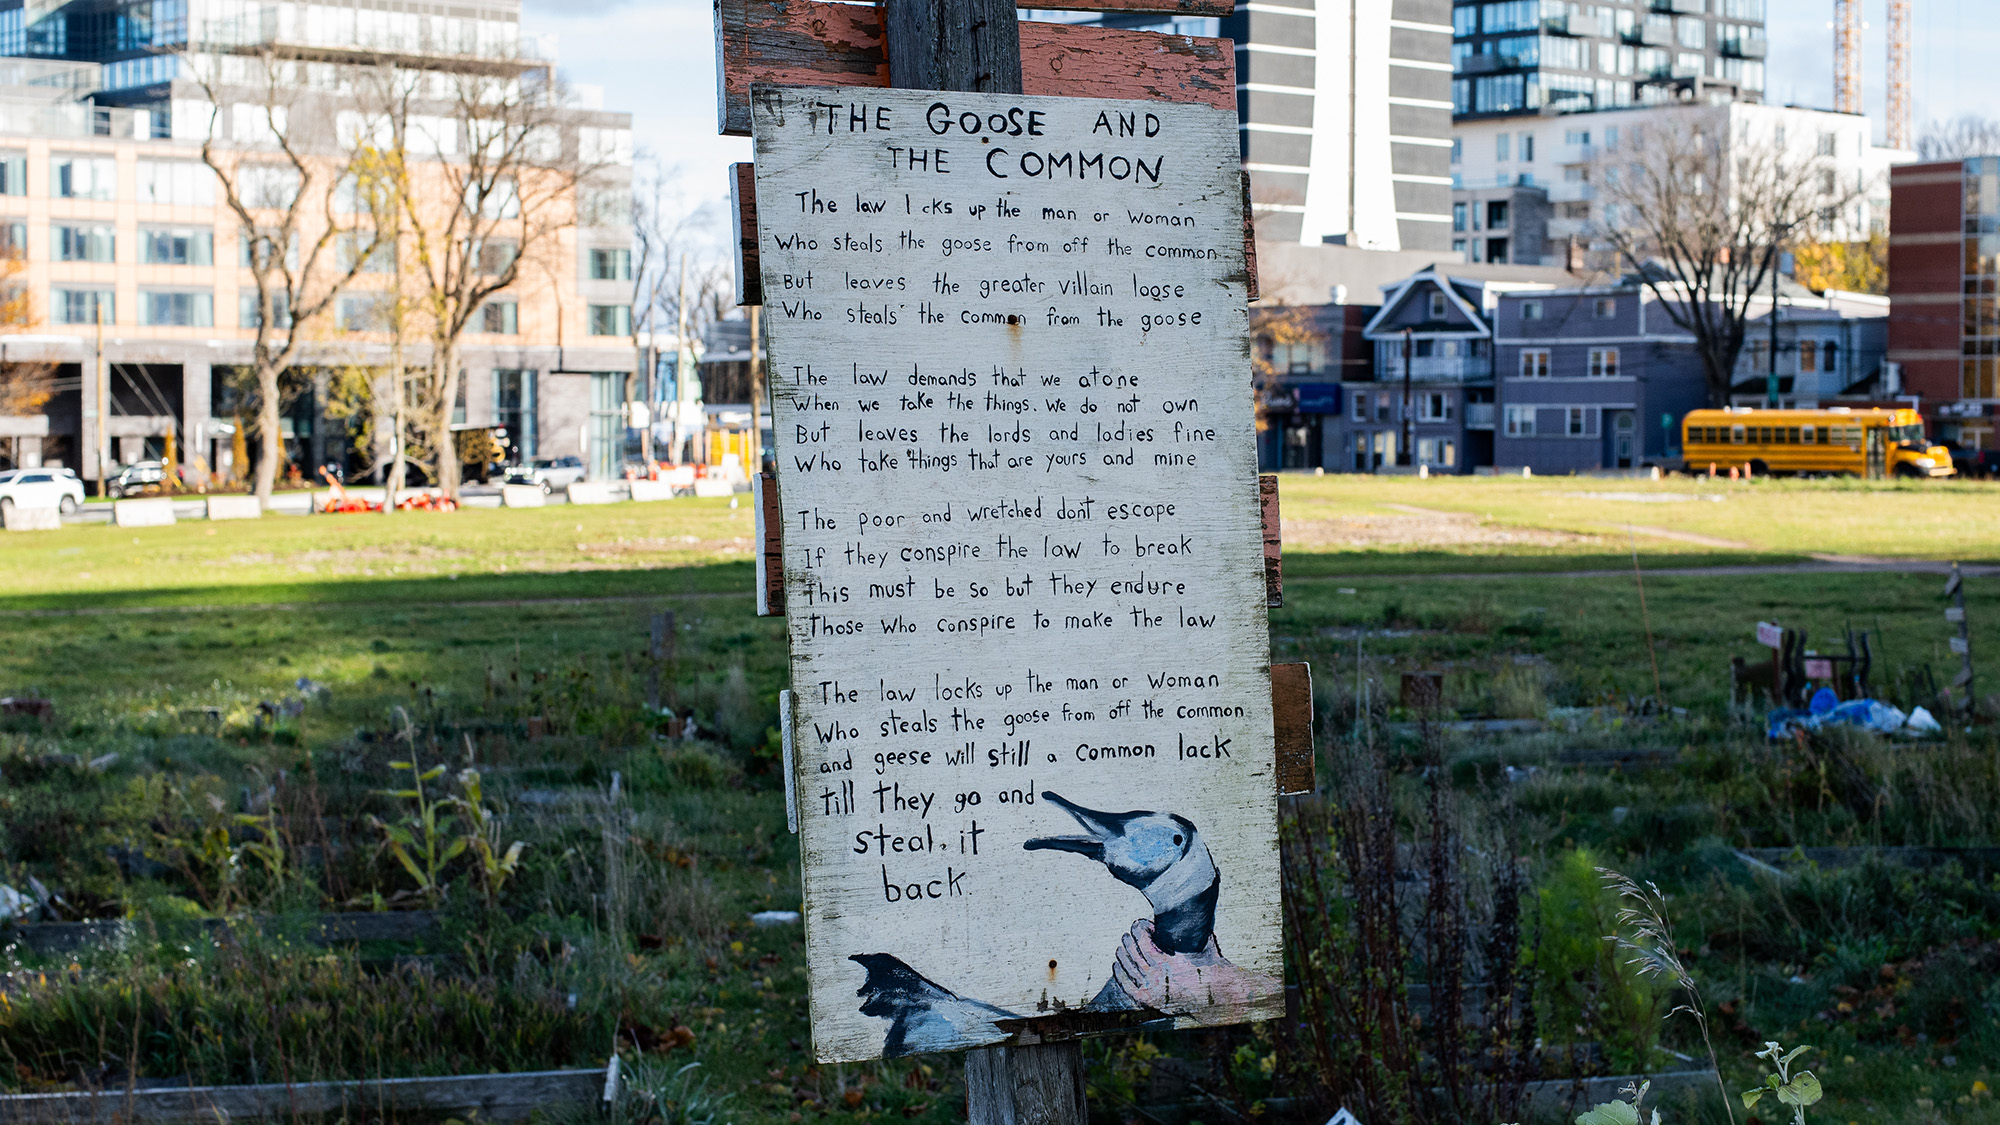 THE GOOSE AND
THE COMMON
The law l cks up the man or woman
Who steals the goose from off the common
But leaves the greater villain loose
Who steals the common from the goose
The law demands that we atone
When we take the things. We do not own
But leaves the lords and ladies fine
Who take things that are yours and mine
The poor and wretched don't escape
If they conspire the law to break
This must be so but they endure
Those who conspire to make the law
The law locks up the man or woman
Who steals the goose from off the common
and geese will still a common lack
till they go and
steal it
back.